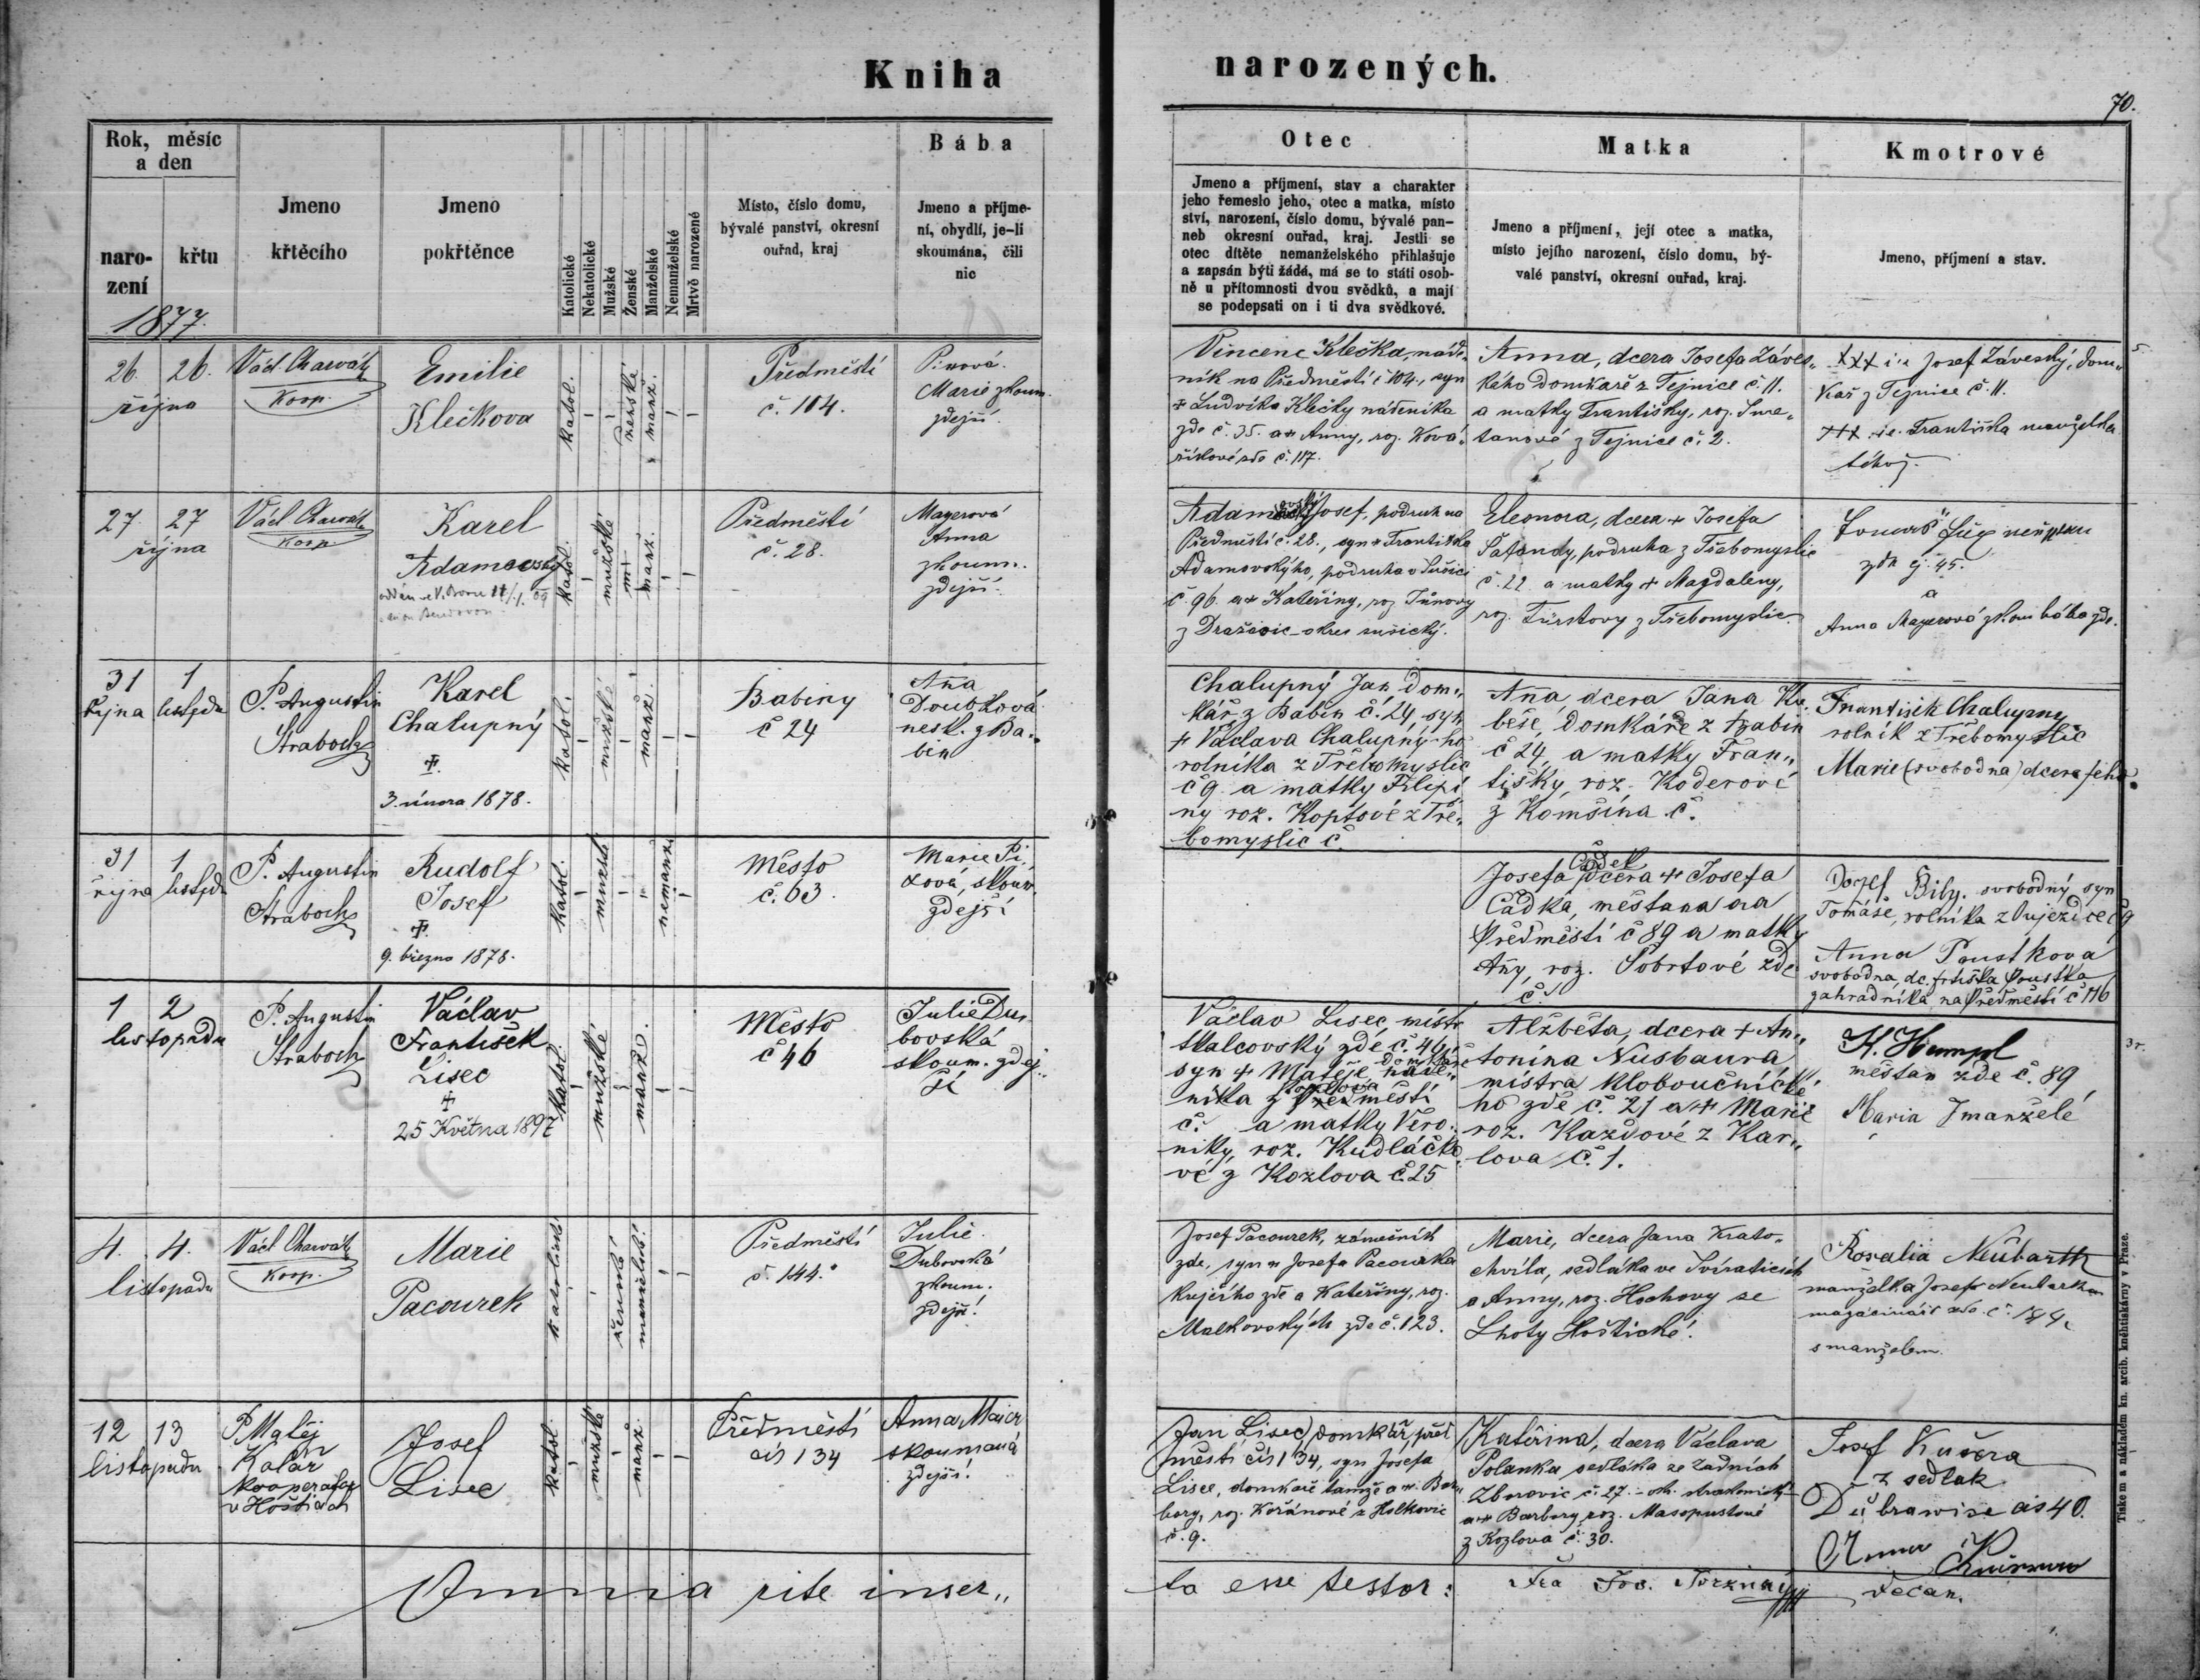 Kniha narozených.
70.
Rok, měsíc
a den
naro-
zení
křtu
1877.
Jmeno
křtěcího
Jmeno
pokřtěnce
Katolické
Nekatolické
Mužské
Ženské
Manželské
Nemanželské
Mrtvě narozené
Místo, číslo domu,
bývalé panství, okresní
ouřad, kraj
Bába
Jmeno a příjme-
ní, obydlí, je-li
skoumána, čili
nic
Otec
Jmeno a příjmení, stav a charakter
jeho řemeslo jeho, otec a matka, místo
ství, narození, číslo domu, bývalé pan-
neb okresní ouřad, kraj. Jestli se
otec dítěte nemanželského přihlašuje
a zapsán býti žádá, má se to státi osob-
ně u přítomnosti dvou svědků, a mají
se podepsati on i ti dva svědkové.
Matka
Jmeno a příjmení, její otec a matka,
místo jejího narození, číslo domu, bý-
valé panství, okresní ouřad, kraj.
Kmotrové
Jmeno, příjmení a stav.
26. 26.
října
Václ. Charvát
Koop.
Emilie
Klečkova
katol.
ženské
manž.
Předměstí
č. 104.
Pixová
Marie zkoum.
zdejší
Vincenc Klečka, náde-
ník na Předměstí č 104., syn
+ Ludvíka Klečky nádeníka
zde č. 35. a + Anny, roz. Ková-
říkové zde č. 117.
Anna, dcera Josefa Záves-
kého domkáře z Tejnice č. 11.
a matky Františky, roz. Sme-
tanové z Tejnice č. 2.
XXX i.e. Josef Záveský, dom-
kář z Tejnice č. 11.
XXX i.e. Františka manželka
téhož.
27. 27
října
Václ. Charvát
Koop.
Karel
Adamovský
katol.
mužské
manž.
Předměstí
č. 28.
Mayerová
Anna
zkoum.
zdejší.
Adamovský Josef, podruh na
Předměstí č. 28., syn + Františka
Adamovského, podruha v Sušici
č. 96. a + Kateřiny, roz. Tůnovy
z Dražovic okres sušický.
Eleonora, dcera + Josefa
Šafandy, podruha z Třebomyslic
č. 22 a matky + Magdaleny,
roz. Fürstovy z Třebomyslic.
zde čj. 45.
a
Anna Mayerová zkou. bába zde.
31 1
října listopdu
P. Augustin
Straboch
Karel
Chalupný
+
3. února 1878.
katol.
mužské
manž.
Babiny
č 24
Aňa
Doubková
nesk. z Ba-
bin
Chalupný Jan dom-
kář z Babin č. 24, syn
+ Václava Chalupný-ho
rolníka z Třebomyslic
č 9 a matky Filipí-
ny roz. Koptové z Tře-
bomyslic č.
Aňa dcera Jana Ku-
beše, domkáře z Babin
č 24, a matky Fran-
tišky, roz. Koderové
z Komšína č.
František Chalupný
rolník z Třebomyslic
Marie (svobodna) dcera jeho.
31 1
října listpdu
P. Augustin
Straboch
Rudolf
Josef
+
9. března 1878.
katol.
mužské
nemanž.
Město
č. 63.
Marie Pi-
xová, skoum.
zdejší
Josefa Čádek dcera + Josefa
Čádka, měštana na
Předměstí č 89 a matky
Aňy, roz. Šobrtové zde
č.
Josef Bílý, svobodný syn
Tomáše, rolníka z Oujezdce č 9
Anna Poustkova
svobodna, dc. Frtiška Poustka
zahradníka na Předměstí č 116
1 2
listopadu
P. Augustin
Straboch
Václav
František
Lisec
+
25 Května 1897
katol.
mužské
manž.
Město
č 46
Julie Du-
bovská
skoum. zdej-
ší
Václav Lisec, mistr
tkalcovský zde č. 46,
syn + Matěje
z Kozlova
č. a matky Vero-
niky, roz. Kudláčko-
vé z Kozlova č. 25
Alžběta, dcera + An-
tonína Nusbaura
mistra kloboučnické-
ho zde č. 21 a + Marie
roz. Kazdové z Kar-
lova č. 1.
K. Hempl
měštan zde č. 89,
Maria manželé
4. 4.
listopadu
Václ. Charvát
Koop.
Marie
Pacourek
katolické
ženské
manželské.
Předměstí
č. 144.
Julie
Dubovská
zkoum.
zdejší.
Josef Pacourek, zámečník
zde, syn Josefa Pacourka
krejčího zde a Kateřiny, roz.
Malkovských zde č. 123.
Marie, dcera Jana Krato-
chvíla, sedláka ve Svíraticích
a Anny, roz. Hochovy ze
Lhoty Hoštické.
Rosalia Neubarth
manželka Josefa Neubartha
magacináře zde č. 184,
s manželem.
12 13
listopadu
P Matěj
Kolář
kooperator
v Hošticích
Josef
Lisec
katol.
mužské
manž.
Předměstí
čís 134
Anna Maier
skoumaná
zdejší.
Jan Lisec, domkář před
městí čís 134, syn Josefa
Lisce, domkáře tamže a m. Bar-
bory, roz. Kořánové z Holkovic
č. 9.
Kateřina, dcera Václava
Polanka sedláka ze Zadních
Zborovic č. 27. ok. strakonický
a + Barbory roz. Masopustové
z Kozlova č. 30.
Josef Kučera
z sedlak
Dubrawice čís 40.
Anna Kučerova
Omnia rite inser-
ta esse testor:
děkan.
Tiskem a nákladem kn. arcib. kněhtiskárny v Praze.